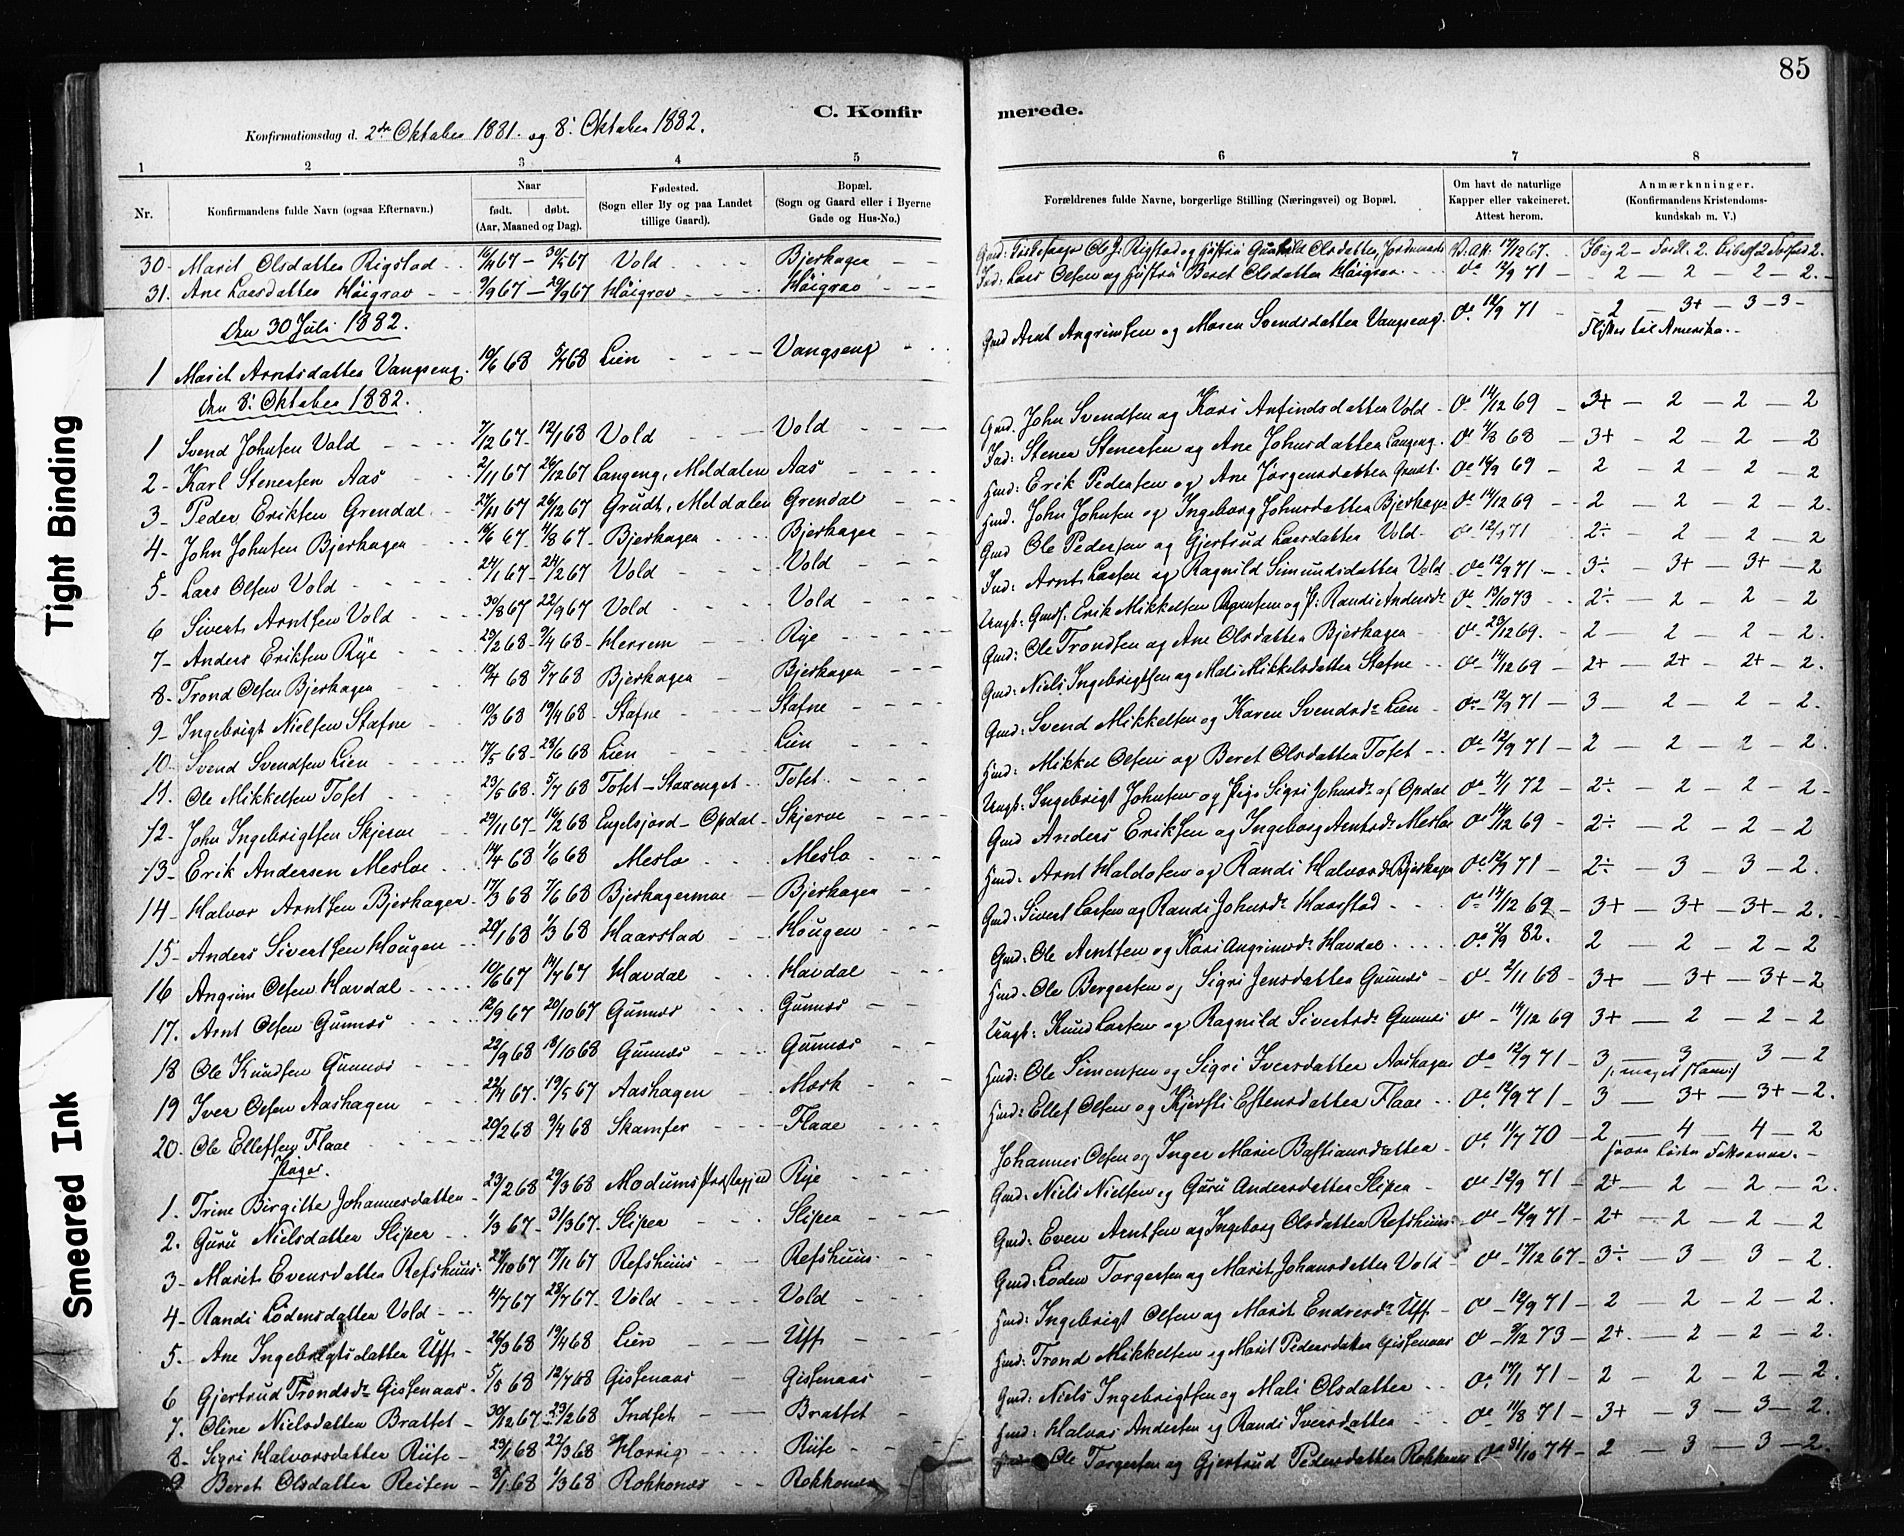 85
C. Konfir
merede.
Konfirmationsdag d. 2den Oktober 1881. og 8' Oktober 1882.
1 2 3 4 5 6 7 8
Nr.
Konfirmandens fulde Navn (ogsaa Efternavn.)
Naar
født. døbt.
(Aar, Maaned og Dag).
Fødested.
(Sogn eller By og paa Landet
tillige Gaard).
Bopæl.
(Sogn og Gaard eller i Byerne
Gade og Hus-No.)
Forældrenes fulde Navne, borgerlige Stilling (Næringsvei) og Bopæl.
Om havt de naturlige
Kapper eller vakcineret.
Attest herom.
Anmærkninger.
(Konfirmandens Kristendoms-
kundskab m. V.)
30- Marit Olsdatter Rigstad Vold Bjerhagen Ole J. Rigstad og Hustru Gunhild Olsdatter 17/12 67.
31. Ane Larsdatter Høigrav 9/9 67 - 29/9 67 Høigrav Høigrav Lars Olsen og Hustru Beret Olsdatter Høigrav 12/9 71 - 2 - 2 - 2 - 2
den 30 Juli 1882.
1 Marit Arntsdatter Vangseng 10/6 68 5/7 68 Lien Vangseng Gmd Arnt Angrimsen og Maren Svendsdatter Vangseng. do 12/9 71 2 - 3+ - 3 - 3 -
Flyttes til Amerika.
den 8' Oktober 1882.
1 Svend Johnsen Vold 7/12 67 - 12/1 68 Vold Vold Gmd. John Svendsen og Kari Anfindsdatter Vold do 14/12 69 3+ - 2 - 2 - 2
2- Karl Stenersen Aas 2/11 67 26/12 67 Langeng, Meldalen Aas Ind: Stener Stenersen og Ane Johnsdatter Langeng do 4/8 68 3+ - 2 - 2 - 2
3- Peder Eriksen Grendal 29/11 67 26/12 67 Grudt, Meldalen Grendal Hmd: Erik Pedersen og Ane Jørgensdatter Grudt do 14/9 69 2 - 2 - 2 - 2
4- John Johnsen Bjerhagen 14/6 67 - 4/8 67 - Bjerhagen Bjerhagen Hmd. John Johnsen og Ingeborg Johnsdatter Bjerhagen do 14/12 69 2 - 2 - 2 - 2
5- Lars Olsen Vold 24/1 67 - 24/2 67 Vold Vold Gmd Ole Pedersen og Gjertrud Larsdatter Vold do 12/9 71 2÷ 2 2 2
6 Sivert Arntsen Vold 30/8 67 22/9 67 Vold Vold Ind: Arnt Larsen og Ragnild Simundsdatter Vold do 12/9 71 3÷ - 3+ - 3+ - 2
7- Anders Eriksen Rye 29/2 68 9/4 68 - Herrem Rye Ungk: Erik Mikkelsen og P: Randi Andersdr do 13/10 73 2÷ - 2 - 2 - 2
8- Trond Olsen Bjerhagen 19/4 68 5/7 68 Bjerhagen Bjerhagen Gmd: Ole Trondsen og Ane Olsdatter Bjerhagen do 29/12 69. 2 - 2 - 2 - 2
9- Ingebrigt Nielsen Stafne 10/3 68 19/4 68 - Stafne Stafne Gmd: Niels Ingebrigtsen og Mali Mikkelsdatter Stafne do 14/12 69 2+ - 2+ - 2+ - 2
10- Svend Svendsen Lien 17/5 68 - 28/6 68 - Lien Lien Gmd: Svend Mikkelsen og Karen Svendsdr Lien do 12/9 71 3 - 2 - 2 - 2
11. Ole Mikkelsen Tofet 23/5 68. 5/7 68 Tofet - Stavenget Tofet Hmd: Mikkel Olsen og Beret Olsdatter Tofet do 12/9 71 2 - 2 - 2 - 2
12- John Ingebrigtsen Skjerve 29/11 67 - 16/2 68 Engelsjord - Opdal Skjerve Ungk: Ingebrigt Johnsen og Pige Sigri Johnsdr af Opdal do 4/1 72 2÷ - 2 - 2 - 2
13- Erik Andersen Mesloe 14/4 68 1/6 68 Meslo Meslo Gmd Anders Eriksen og Ingeborg Arntsdr Mesloe do 14/12 69 2÷ - 2 - 2 - 2
14- Halvor Arntsen Bjerhagen 17/3 68 7/6 68 Bjerhagermoe Bjerhagen Hmd: Arnt Haldosen og Randi Halvorsdr Bjerhagen do 12/9 71 2÷ - 3 - 3 - 2
15- Anders Sivertsen Hougen 20/1 68 1/3 68 Haarstad Hougen Gmd: Sivert Larsen og Randi Johnsdr Haarstad do 14/12 69 3+ - 3+ - 3+ - 2
16 Angrim Olsen Havdal 10/6 67 14/7 67 Havdal Havdal Gmd: Ole Arntsen og Kari Angrimsdr Havdal do 2/9 82. 2 - 2 - 2 - 2
17. Arnt Olsen Gunnes 12/9 67 20/10 67 Gunnes Gunnes Hmd: Ole Bergersen og Sigri Jensdatter Gunnes do 2/11 68 3+ - 3+ - 3+ - 2
18 Ole Knudsen Gunnes 22/9 68 18/10 68 Gunnes Gunnes Ungk: Knud Larsen og Ragnild Sivertsdr Gunnes do 14/12 69 3+ - 2 - 2 - 2
19 Iver Olsen Aashagen 22/4 67. 19/5 67 Aashagen Mosk Hmd: Ole Simensen og Sigri Iversdatter Aashagen do 12/9 71 3 - 3 - 3 - 2
20. Ole Ellefsen Flaae 29/2 68 9/4 68 - Skamfer Flaae Hmd: Ellef Olsen og Kjersti Estensdatter Flaae do 12/9 71 3 3+ - 3+ - 2
Piger.
1. Trine Birgitte Johannesdatter 23/2 68 29/3 68 Modums Præstegjeld Rye Johannes Olsen og Inger Marie Bastiansdatter do 11/7 70 2 - 4 - 4 - 2
2. Guru Nielsdatter Sliper 1/3 67 - 31/3 67. Sliper Sliper Gmd: Niels Nielsen og Guru Andersdatter Sliper do 12/9 71 2+ - 2 - 2 - 2
3- Marit Evensdatter Refshuus 27/10 67 17/11 67 Refshuus Refshuus Gmd: Even Arntsen og Ingeborg Olsdatter Refshuus do 12/9 71 2+ - 2 - 2 - 2
4 Randi Lødensdatter Vold 4/7 67 28/7 67 - Vold Vold Gmd: Løden Torgersen og Marit Johansdatter Vold do 17/12 67 3÷ - 3 3 - 2
5. Ane Ingebrigtsdatter Uff 26/3 68 19/4 68 Lien Uff Hmd: Ingebrigt Olsen og Marit Endresdr Uff do 12/9 71 2 - 2 - 2 - 2
6 Gjertrud Trondsdr Gisnaas 5/5 68 12/7 68 Gisnaas Gisnaas Hmd: Trond Mikkelsen og Marit Pedersdatter Gisnaas do 9/12 73 2+. - 2 - 2 - 2
7. Oline Nielsdatter Brattet 30/12 67 - 23/2 68 Indset Brattet Gmd: Niels Ingebrigtsen og Mali Olsdatter do 17/1 71 2 - 2 - 2 - 2
8- Sigri Halvorsdatter Riise 29/1 68 22/3 68 Horrig Riise Hmd: Halvor Andersen og Randi Iversdatter do 11/8 71 3+ - 3 - 3 - 2
9 Beret Olsdatter Reiten 8/1 68 1/3 68 Rokkones Rokkones Ole Torgersen og Gjertrud Pedersdatter Rokkones do 31/10 74 2 - 3 - 3 - 2
Tight Binding
Smeared Ink